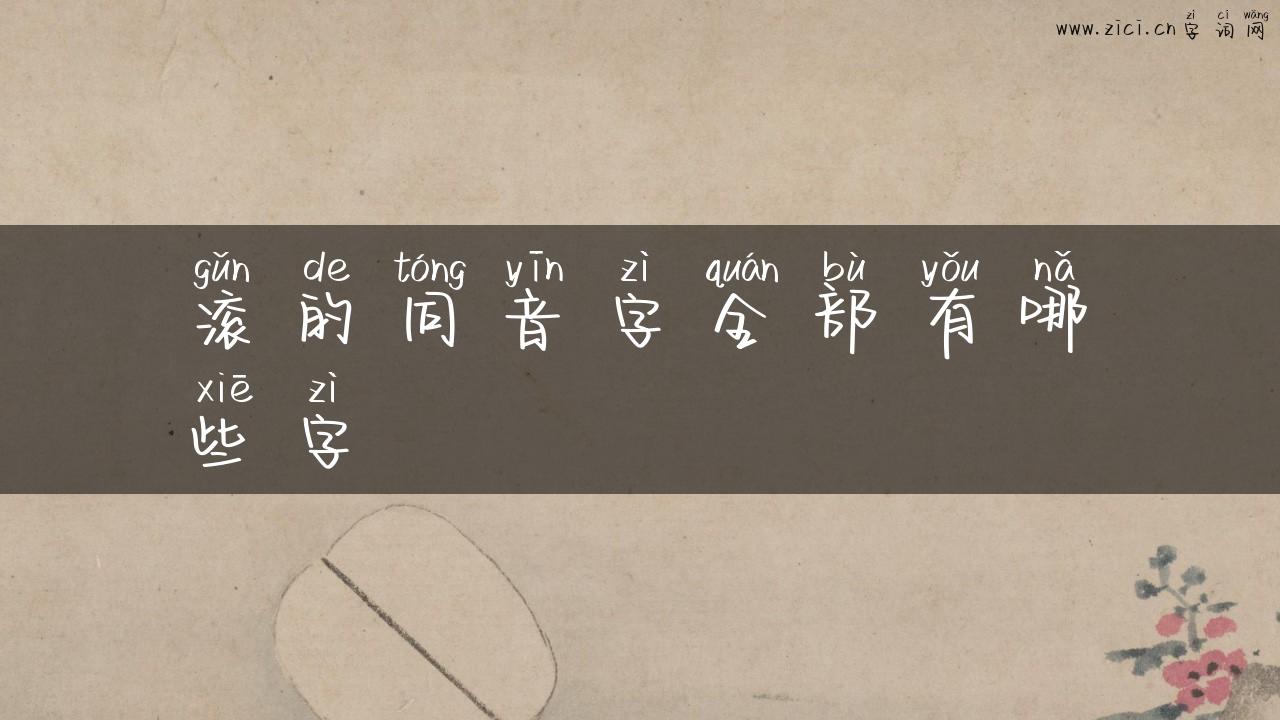 zì cí wǎng
www.zici.cn字词网
gǔn de tóng yīn zì quán bù yǒu nǎ
滚的同音字全部有哪
xiē zì
些字